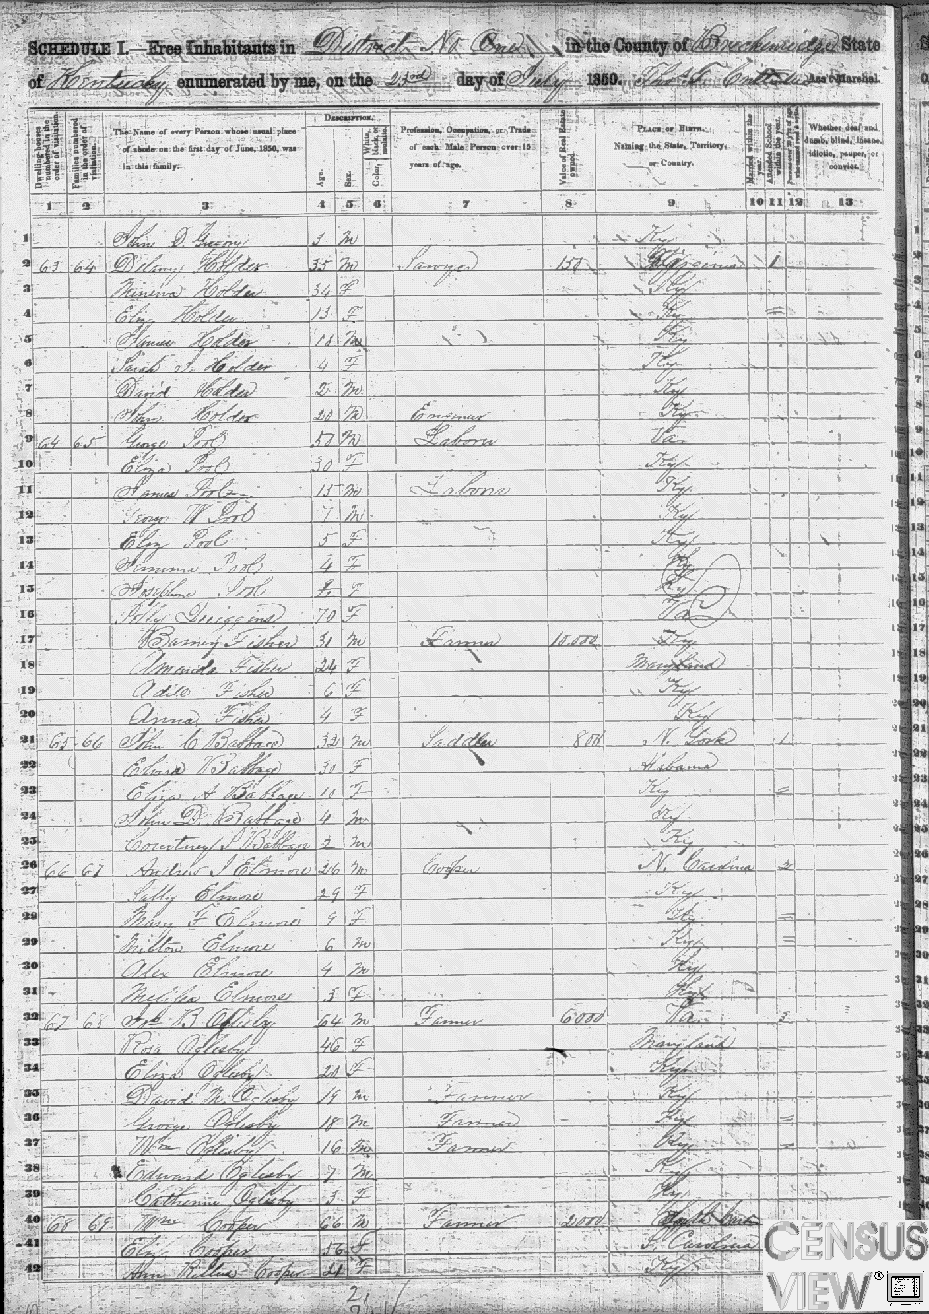 SCHEDULE I.—Free Inhabitants in District No One in the County of Breckenridge State
of Kentucky enumerated by me, on the 23rd day of July 1850. Ass't Marshal.
Dwelling-houses numbered in the order of visitation.
Families numbered in the order of visitation.
The Name of every Person whose usual place of abode on the first day of June, 1850, was in this family.
DESCRIPTION.
Age.
Sex.
Color, White, black, or mulatto.
Profession, Occupation, or Trade of each Male Person over 15 years of age.
Value of Real Estate owned.
PLACE OF BIRTH. Naming the State, Territory, or Country.
Married within the year.
Attended School within the year.
Whether deaf and dumb, blind, insane, idiotic, pauper, or convict.
1 2 3 4 5 6 7 8 9 10 11 12 13
1 John D 3 M Ky
2 63 64 Holder 35 M Sawyer 150 Virginia 1
3 Minerva Holder 34 F Ky
4 Eliz Holder 13 F Ky =
5 James Holder M Ky
6 Sarah J Holder 4 F Ky
7 David Holder 2 M Ky
8 John Holder 20 M Ky
9 64 65 George Pool 50 M Laborer Va
10 Eliza Pool 30 F Ky
11 James Pool 15 M Laborer Ky
12 George W Pool 7 M Ky
13 Eliz Pool 5 F Ky
14 Pool 4 F Ky
15 Josephine Pool F Ky
16 Polly 70 F Va
17 Barney Fisher 31 M Farmer 10.000 Ky
18 Amanda Fisher 24 F Maryland
19 Fisher 6 F Ky
20 Anna Fisher 4 F Ky
21 65 66 John C Babbage 32 M Saddler 800 N. York 1
22 Babbage 30 F Alabama
23 Eliza A Babbage 10 F Ky =
24 John D. Babbage 4 M Ky
25 Courtney J Babbage 2 M Ky
26 66 67 Andrew J Elmore 26 M Cooper N. Carolina 2
27 Sally Elmore 29 F Ky
28 Mary F Elmore 9 F Ky =
29 Milton Elmore 6 M Ky =
30 Alex Elmore 4 M Ky
31 Elmore 3 F Ky
32 67 68 B Oglesby 64 M Farmer 6000 Va 3
33 Rosa Oglesby 46 F Maryland
34 Eliza Oglesby F Ky
35 David M Oglesby 19 M Farmer Ky
36 George Oglesby 18 M Farmer – Ky =
37 Wm Oglesby 16 M Farmer Ky
38 Edward Oglesby 7 M Ky
39 Catherine Oglesby 3 F Ky
40 68 69 Wm Cooper 66 M Farmer 2000
41 Eliz Cooper 56 F S. Carolina
42 Ann Cooper 21 F Ky
CENSUS
VIEW®